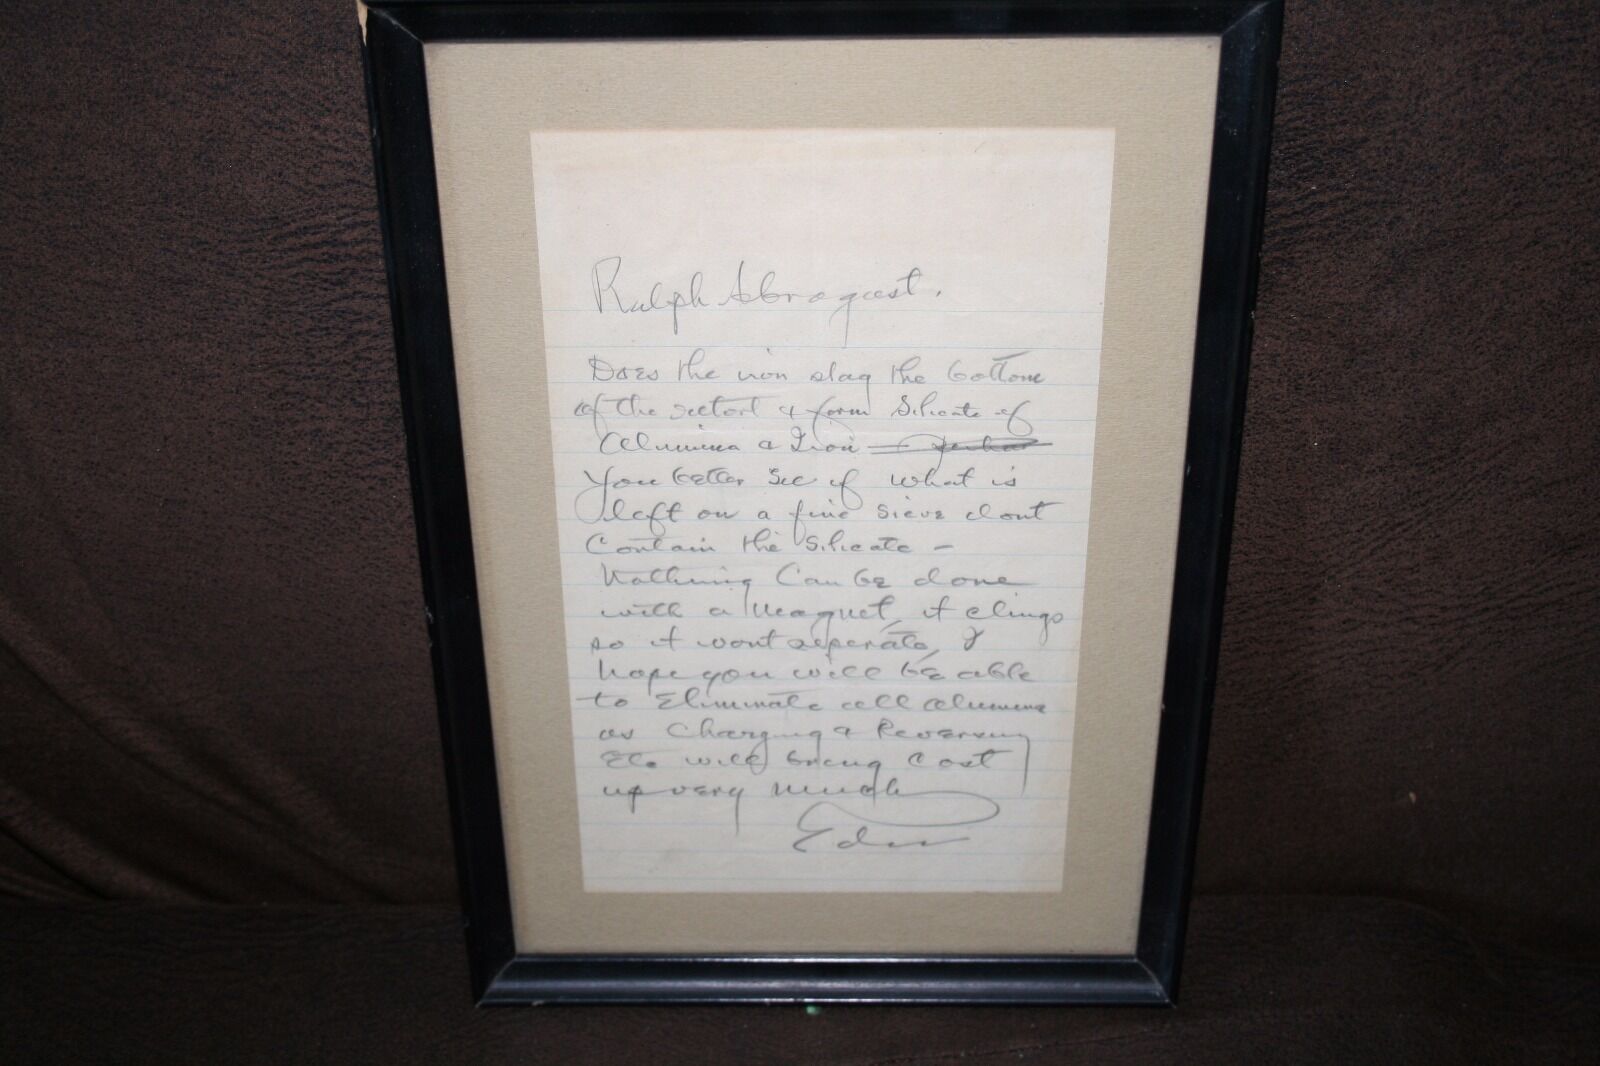 Ralph Abrogast.
Does the iron slag the bottom
of the retort & form Silicate of
Alumina & Iron
You better see if what is
left on a fine sieve dont
Contain the Silicate —
Nothing Can be done
with a Magnet, it clings
so it wont seperate, I
hope you will be able
to Eliminate all Alumina
as Charging & Reversing
Etc will bring Cost
up very much